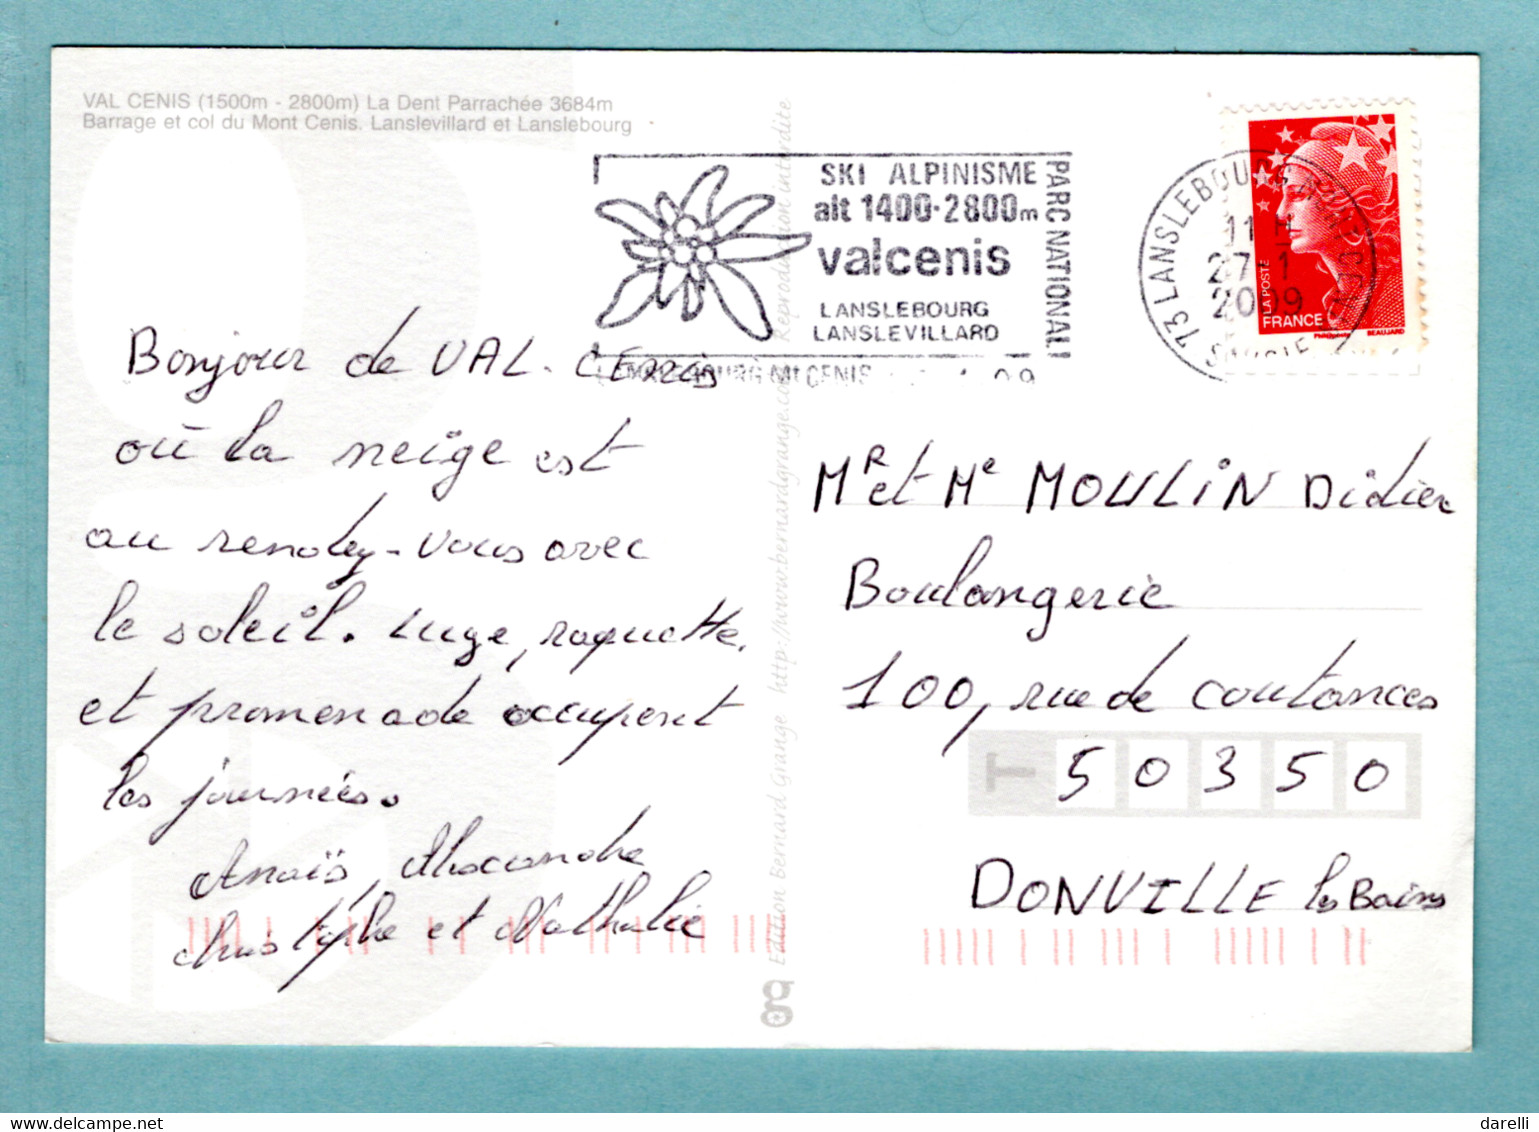 VAL CENIS (1500m - 2800m) La Dent Parrachée 3684m
Barrage et col du Mont Cenis. Lanslevillard et Lanslebourg
SKI ALPINISME
alt 1400-2800m
valcenis
LANSLEBOURG
LANSLEVILLARD
PARC NATIONAL
73 LANSLEBOURG
11 H
27 1
2009
SAVOIE
LA POSTE
FRANCE
BEAUJARD
Bonjour de VAL-CENis
où la neige est
au rendez-vous avec
le soleil. Luge, raquette,
et promenade occupent
les journées.
Anaïs, Alexandre
Christophe et Nathalie
Edition Bernard Grange http://www.bernardgrange.com Reproduction interdite
Mr et Me MOULIN Didier
Boulangerie
100, rue de coutances
T 50350
DONVILLE les Bains
darelli